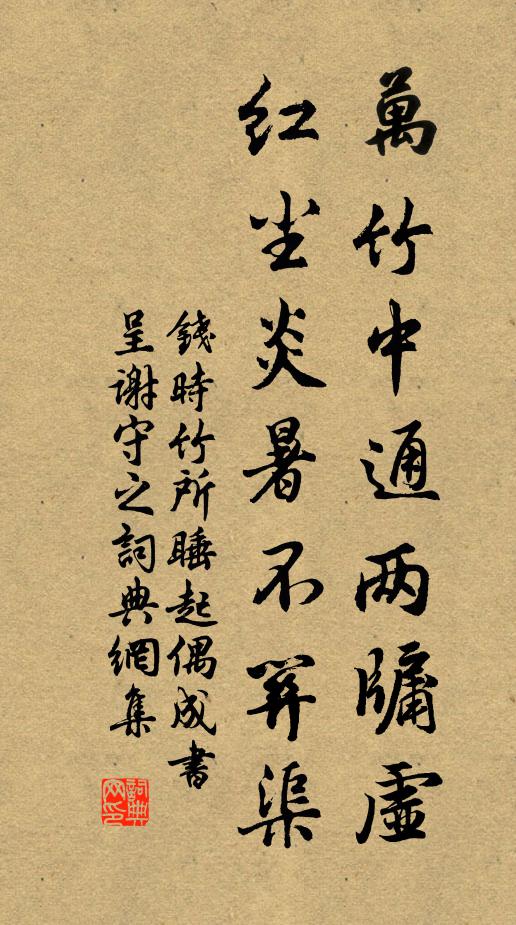 萬竹中通两牖虛
紅尘炎暑不關渠
錢時竹所睡起偶成書
呈謝守之詞典網集
詞典
网印